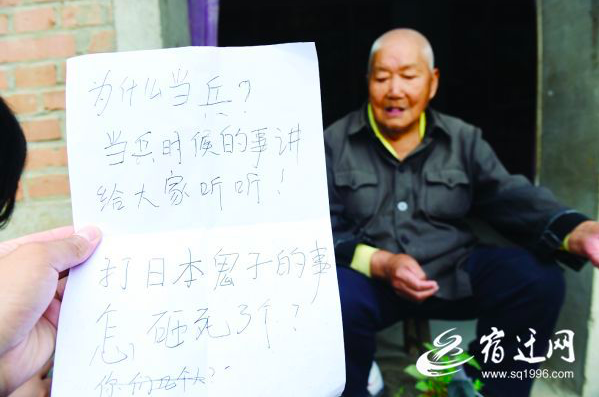 为什么当兵?
当兵时候的事讲
给大家听听!
打日本鬼子的事
怎 砸死3个?
宿迁网
www.sq1996.com